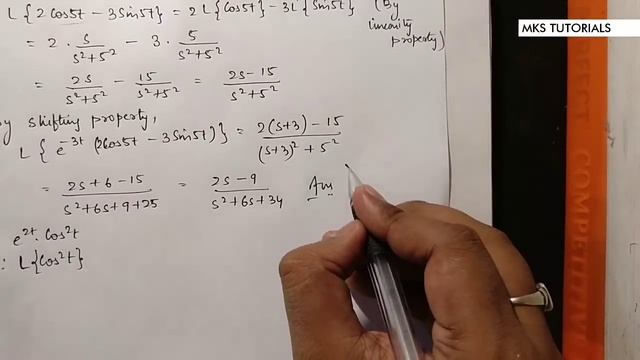 MKS TUTORIALS
L{2Cos5t - 3Sin5t} = 2L{Cos5t} - 3L{Sin5t} (By linearity property)
= 2 · s/(s²+5²) - 3 · 5/(s²+5²)
= 2s/(s²+5²) - 15/(s²+5²) = (2s-15)/(s²+5²)
by shifting property,
L{e^{-3t}(2Cos5t - 3Sin5t)} = (2(s+3) - 15)/((s+3)² + 5²)
= (2s+6-15)/(s²+6s+9+25) = (2s-9)/(s²+6s+34) Ans
e^{2t}·Cos²t
: L{Cos²t}